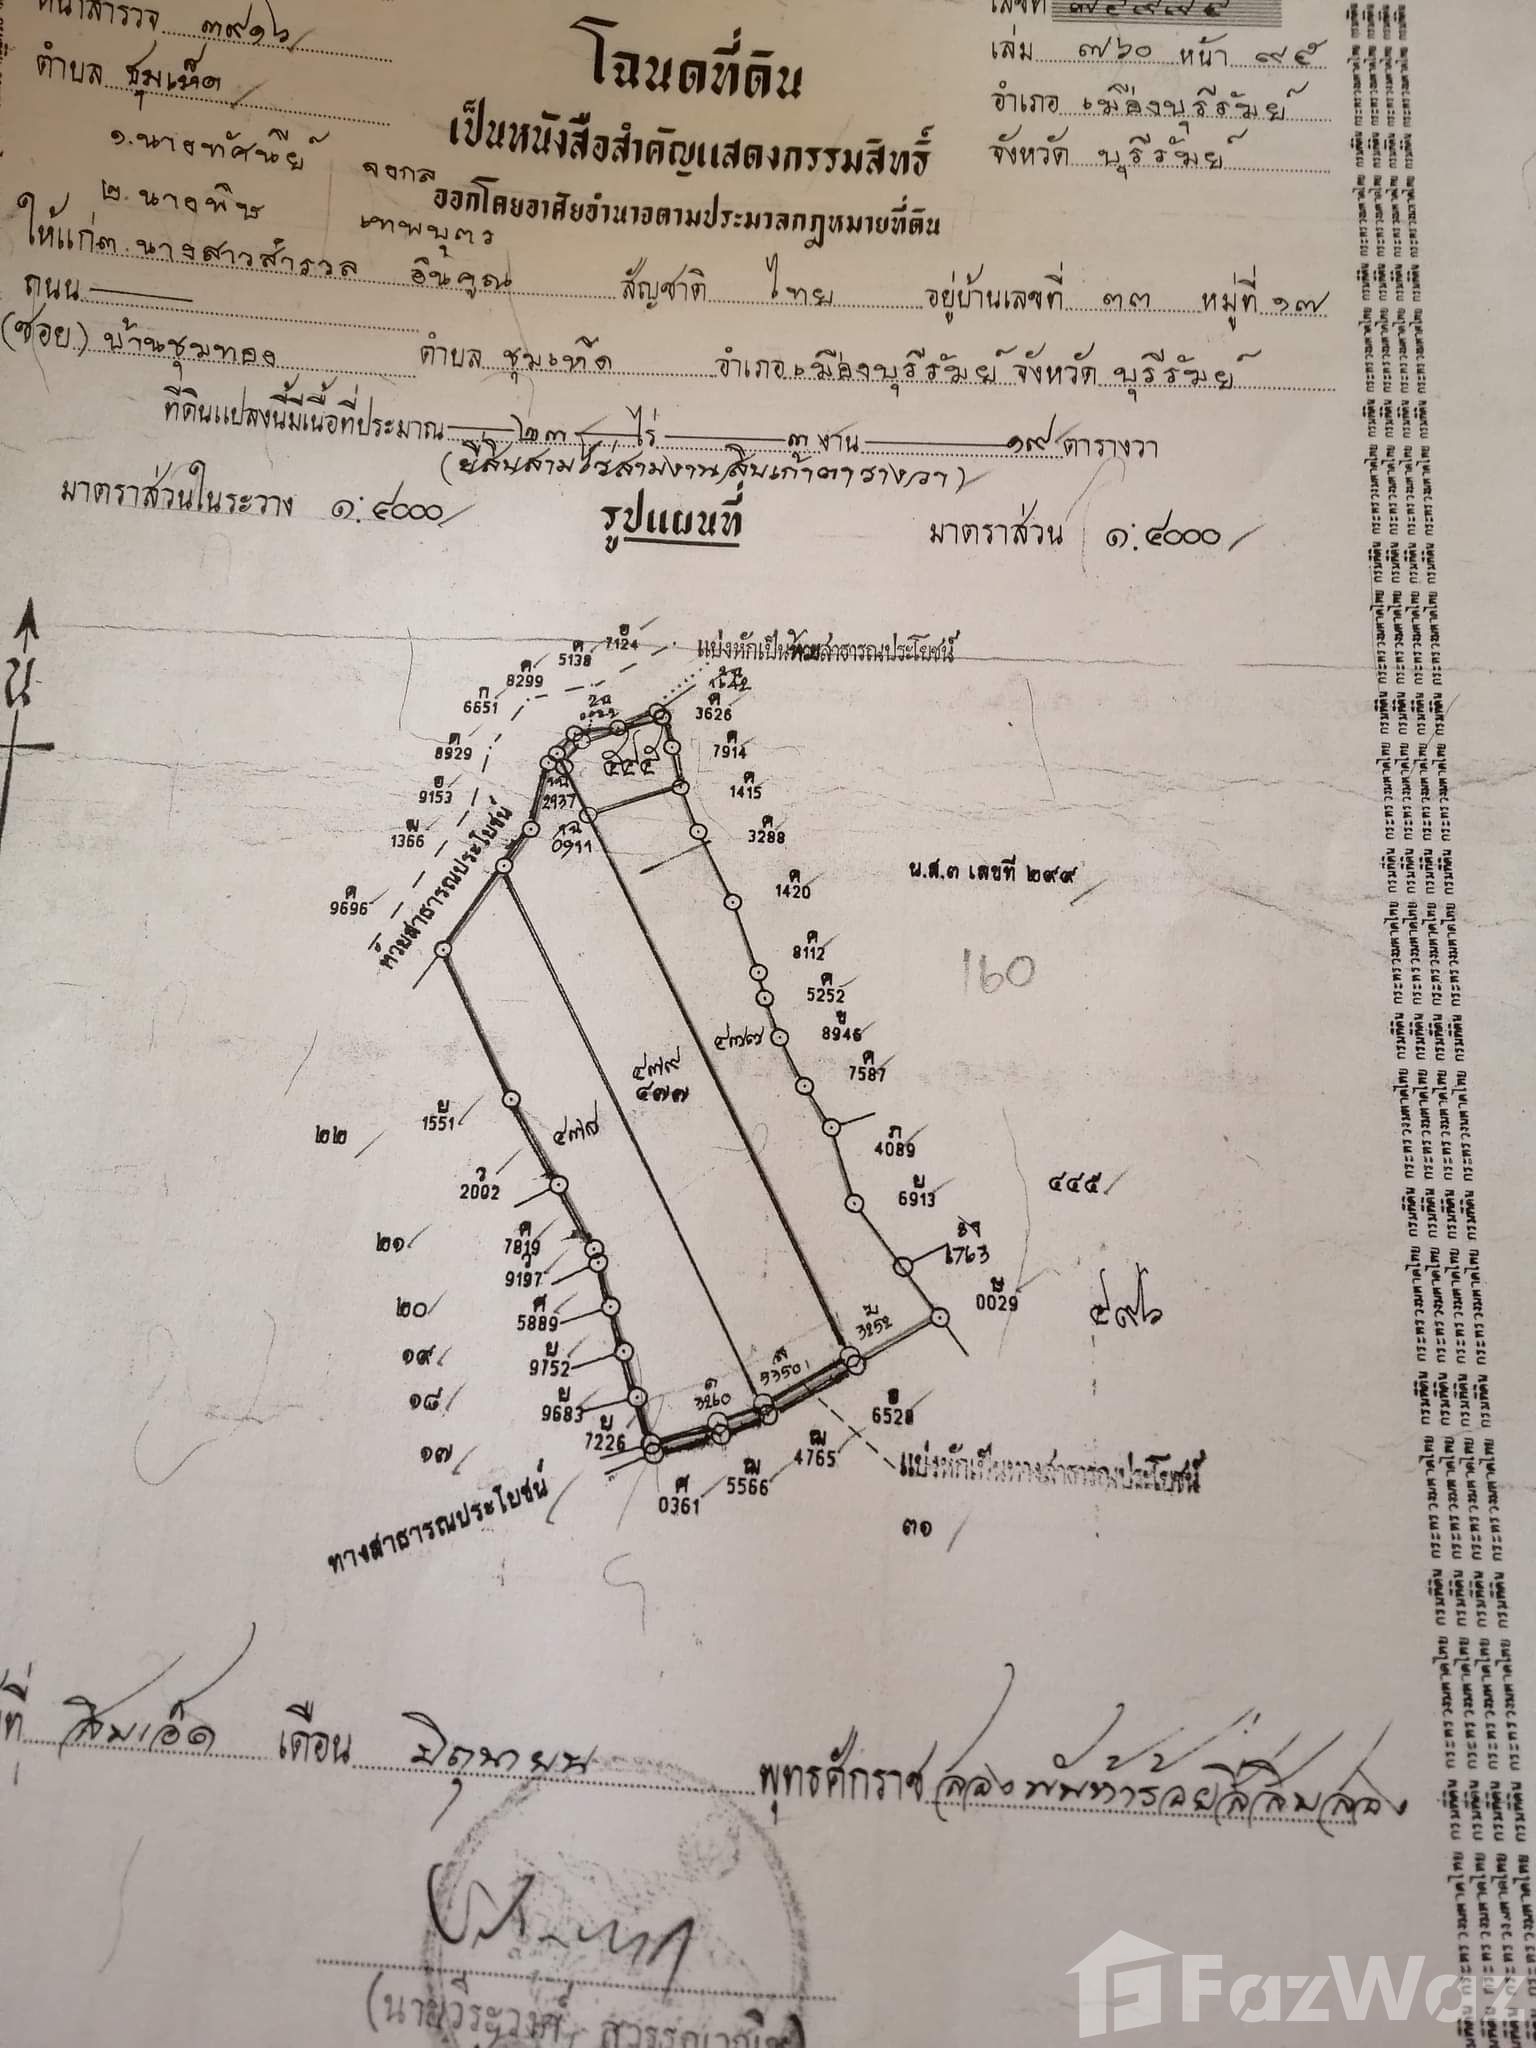 หน้าสำรวจ ๓๙๑๖
เลขที่
โฉนดที่ดิน
เล่ม ๗๖๐ หน้า ๙๕
ตำบล ชุมเห็ด
อำเภอ เมืองบุรีรัมย์
เป็นหนังสือสำคัญแสดงกรรมสิทธิ์
จังหวัด บุรีรัมย์
๑. นางทัศนีย์ จงกล
ออกโดยอาศัยอำนาจตามประมวลกฎหมายที่ดิน
๒. นางพิช เทพบุตร
ให้แก่ ๓. นางสาวสำรวล อินคูณ สัญชาติ ไทย อยู่บ้านเลขที่ ๓๓ หมู่ที่ ๑๗
ถนน
(ซอย) บ้านชุมทอง ตำบล ชุมเห็ด อำเภอ เมืองบุรีรัมย์ จังหวัด บุรีรัมย์
ที่ดินแปลงนี้มีเนื้อที่ประมาณ ๒๓ ไร่ ๓ งาน ๑๙ ตารางวา
(ยี่สิบสามไร่สามงานสิบเก้าตารางวา)
มาตราส่วนในระวาง ๑:๔๐๐๐ รูปแผนที่ มาตราส่วน ๑:๔๐๐๐
น
7124
5138
8299
6651
8929
9153
1366
9696
แบ่งหักเป็นห้วยสาธารณประโยชน์
3626
7914
1415
3288
1420
8112
5252
8946
7587
4089
6913
1763
0029
๕๔๕
2937
0911
ห้วยสาธารณประโยชน์
น.ส.๓ เลขที่ ๒๙๙
160
๔๗๗
๔๗๙
๔๗๗
1551
๒๒
๔๗๘
2002
๔๔๕
๒๑
7819
9197
๒๐
5889
๕๙๖
๑๙
9752
3252
5350
๑๘
9683
3260
๑๗
7226
6528
4765
5566
0361
แบ่งหักเป็นทางสาธารณประโยชน์
ทางสาธารณประโยชน์
๓๑
ที่ สิบเอ็ด เดือน มิถุนายน พุทธศักราช สองพันห้าร้อยสี่สิบสอง
(นายวีระวงศ์
FazWaz